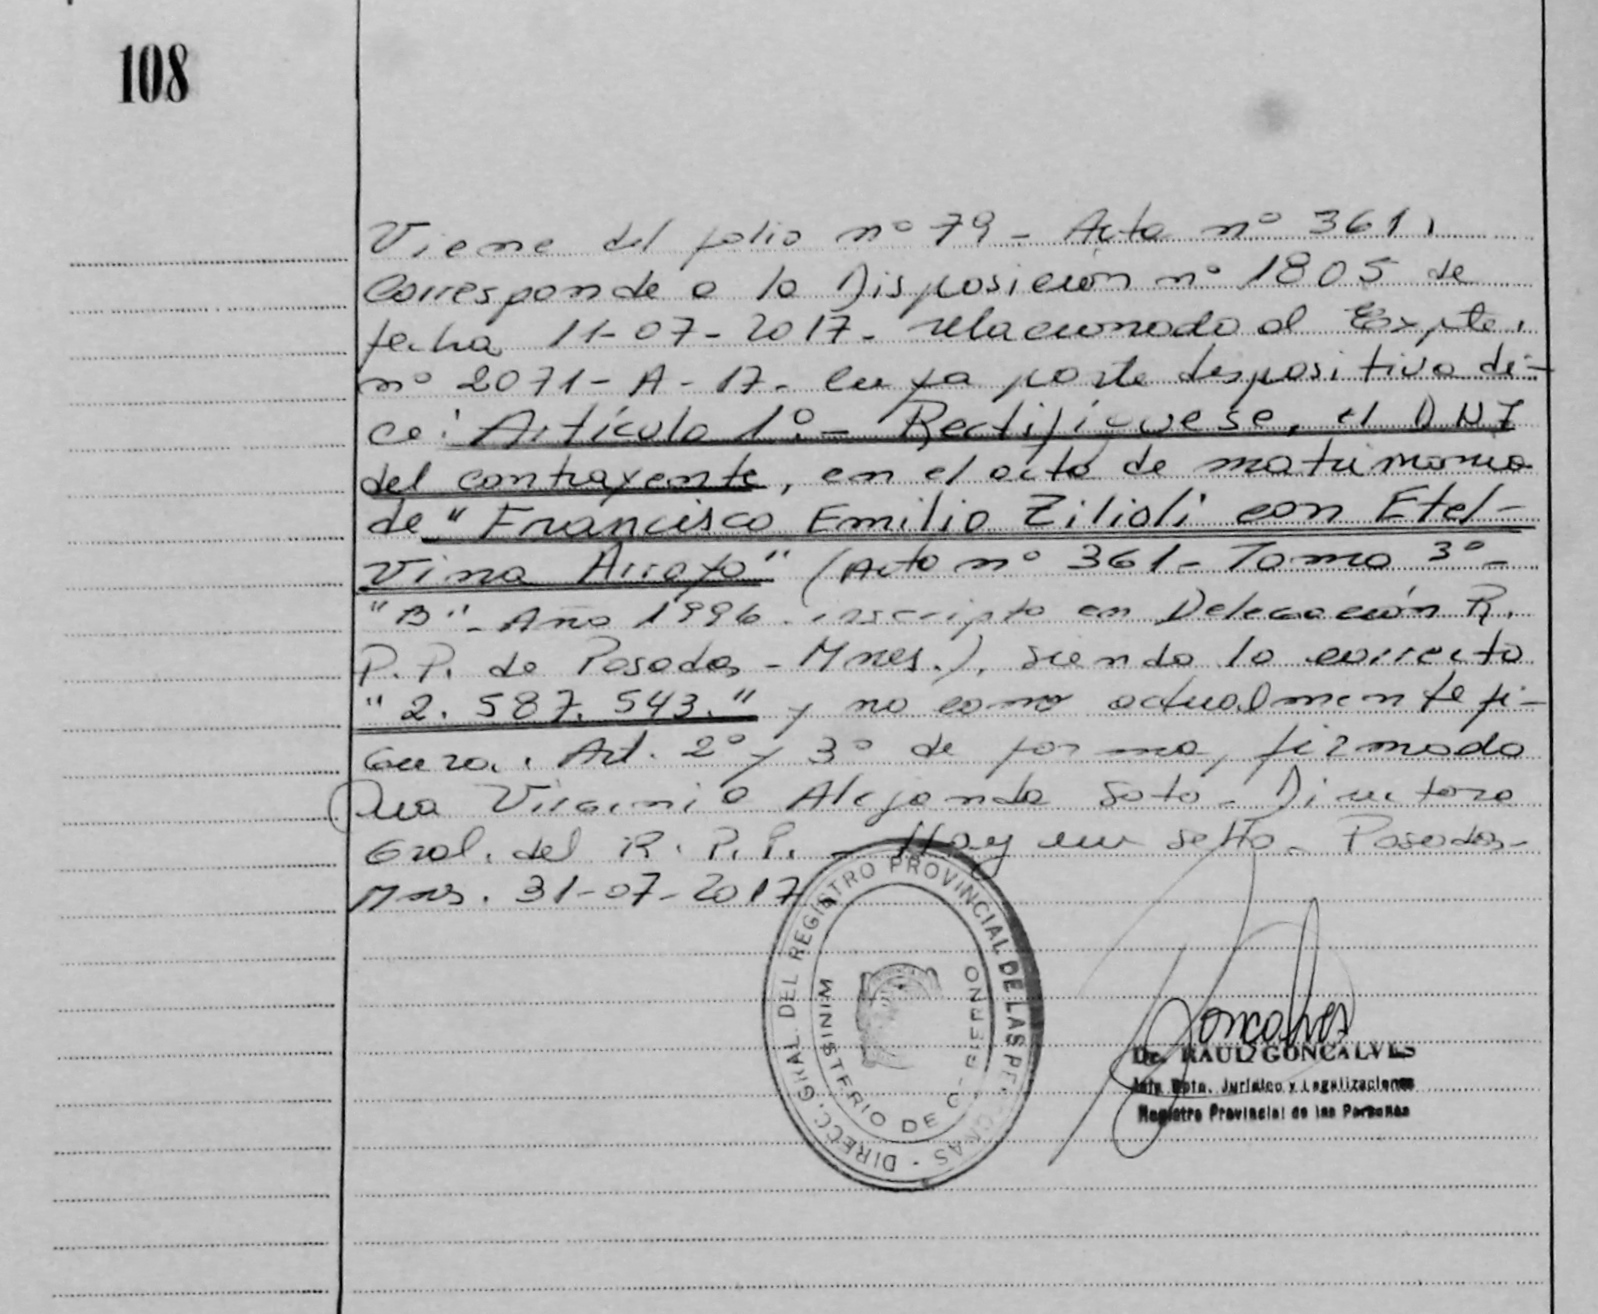 108
Viene del folio nº 79 - Acta nº 361.
Corresponde a la Disposición nº 1805 de
fecha 11-07-2017- relacionado al Expte.
nº 2071-A-17- cuya parte dispositiva di-
ce: Artículo 1º.- Rectifíquese, el DNI
del contrayente, en el acta de matrimonio
de "Francisco Emilio Zilioli con Etel-
vina Arrayo" (Acta nº 361- Tomo 3º-
"B"- Año 1996. inscripta en Delegación R.
P.P. de Posadas - Mnes.). siendo lo correcto
"2.587.543." y no como actualmente fi-
gura. Art. 2º y 3º de forma, firmado
Dra Virginia Alejandra Soto- Directora
Gral. del R.P.P. - Hay un sello- Posadas-
Mnes. 31-07-2017
DIRECC. GRAL. DEL REGISTRO PROVINCIAL DE LAS PERSONAS
MINISTERIO DE GOBIERNO
Goncalves
Dr. RAUL GONCALVES
Jefe Dpto. Jurídico y Legalizaciones
Registro Provincial de las Personas